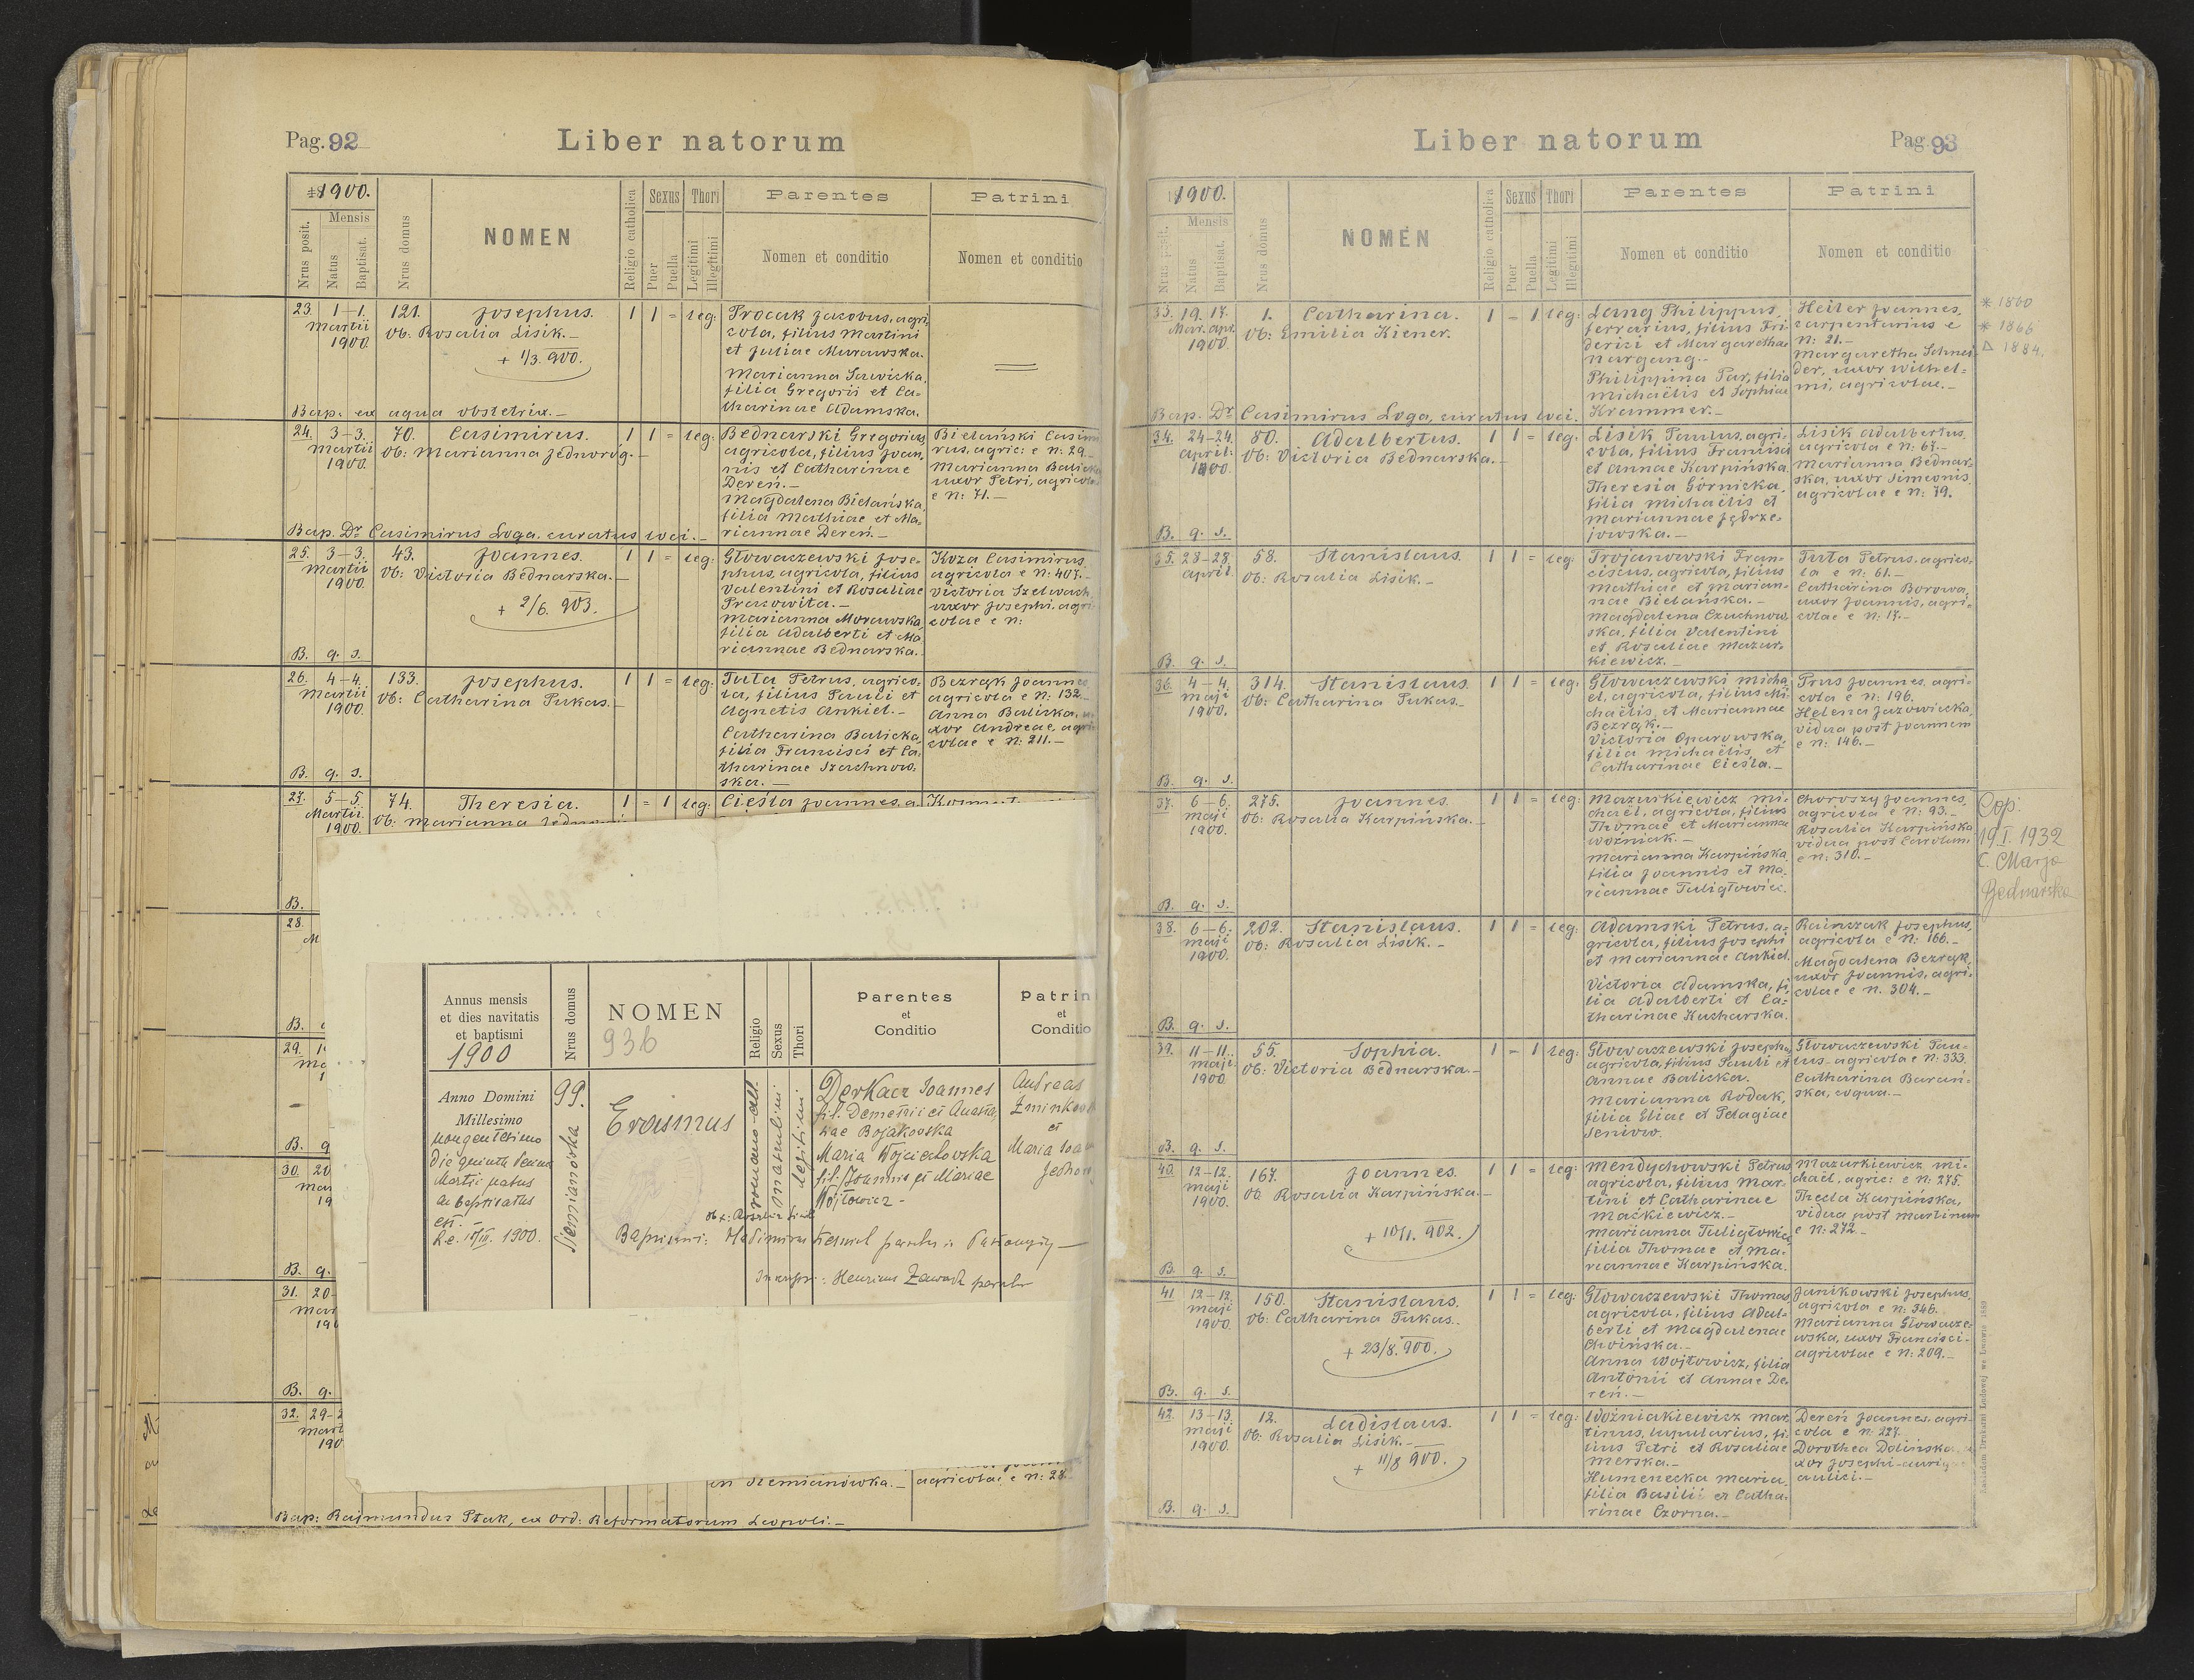 Pag. 92
Liber natorum
1900.
Nrus posit.
Mensis
Natus
Baptisat.
Nrus domus
NOMEN
Religio catholica
Sexus
Puer
Puella
Thori
Legitimi
Illegitimi
Parentes
Nomen et conditio
Patrini
Nomen et conditio
23. 1-1. Martii 1900. 121. Josephus. 1 1 = leg:
Ob: Rosalia Lisik.-
+ 1/3. 900.
Procak Jacobus, agri-
cola, filius Martini
et Juliae Murawska.
Marianna Sawicka,
filia Gregorii et Ca-
tharinae Adamska.
Bap. ex aqua obstetrix.-
24. 3-3. Martii 1900. 70. Casimirus. 1 1 = leg:
Ob: Marianna Jednoróg.-
Bednarski Gregorius,
agricola, filius Joan-
nis et Catharinae
Dereń.-
Magdalena Bielańska,
filia Mathiae et Ma-
riannae Dereń.-
Bielański Casimi
rus, agric: e n: 29.
Marianna Balicka
uxor Petri, agricolae
e n: 71.-
Bap. Dr Casimirus Loga, curatus loci.-
25. 3-3. Martii 1900. 43. Joannes. 1 1 = leg:
Ob: Victoria Bednarska.-
+ 2/6. 903.
Głowaczewski Jose-
phus, agricola, filius
Valentini et Rosaliae
Marianna Morawska,
filia Adalberti et Ma
riannae Bednarska.
Koza Casimirus,
agricola e n: 407.-
Victoria Szelwach,
uxor Josephi, agri-
colae e n:
B. q. s.
26. 4-4. Martii 1900. 133. Josephus. 1 1 = leg:
Ob: Catharina Pukas.-
Tuta Petrus, agrico-
la, filius Pauli et
Agnetis Ankiel.-
Catharina Balicka,
filia Francisci et Ca-
tharinae Szachnow-
ska.-
Bezrąk Joannes
agricola e n: 132.-
Anna Balicka, u-
xor Andreae, agri-
colae e n: 211.-
B. q. s.
27. 5-5. Martii 1900. 74. Theresia. 1 = 1 leg:
Ob: Marianna
Cieśla Joannes, a
B.
28.
B.
29.
B. q
30. 20
B. q.
31. 20-
B. q.
32. 29-
Annus mensis
et dies navitatis
et baptismi
1900
Nrus domus
NOMEN
936
Religio
Sexus
Thori
Parentes
et
Conditio
Patrin
et
Conditio
Anno Domini
Millesimo
nongentesimo
die quinta
Martii natus
ac baptisatus
est.
h.e. 1900.
99.
Siemianówka
Erasmus
romano-cath.
masculini
legitimi
Derkacz Joannes
fil. Demetrii et Anasta-
siae Bojakowska
Maria Wojciechowska
fil. Joannis et Mariae
Wójtowicz -
Andreas
et
Maria
Inscripsi: Henricus
in Siemianówka.-
agricolae, e n: 28.
Bap: Raimundus Ptak, ex Ord: Reformatorum Leopoli.-
Liber natorum
Pag. 93
1900.
Nrus posit.
Mensis
Natus
Baptisat.
Nrus domus
NOMEN
Religio catholica
Sexus
Puer
Puella
Thori
Legitimi
Illegitimi
Parentes
Nomen et conditio
Patrini
Nomen et conditio
33. 19. 17. Mar. apr. 1900. 1. Catharina. 1 - 1 leg:
Ob: Emilia Kiener.
Lang Philippus,
ferrarius, filius Fri-
derici et Margarethae
Nargang.-
Philippina Par, filia
Michaëlis et Sophiae
Krammer.-
Heiler Joannes,
carpentarius e
n: 21.-
Margaretha Schnei-
der, uxor Wilhel-
mi, agricolae.-
* 1860
* 1866
△ 1884.
Bap. Dr Casimirus Loga, curatus loci.
34. 24-24. April: 1900. 80. Adalbertus. 1 1 = leg:
Ob: Victoria Bednarska.-
Lisik Paulus, agri-
cola, filius Francisci
et Annae Karpińska.
Theresia Górnicka,
filia Michaëlis et
Mariannae Jędrze-
jowska.-
Lisik Adalbertus,
agricola e n: 67.-
Marianna Bednar-
ska, uxor Simeonis,
agricolae e n: 79.
B. q. s.
35. 28-28. April. 58. Stanislaus. 1 1 = leg:
Ob: Rosalia Lisik.-
Trojanowski Fran-
ciscus, agricola, filius
Mathiae et Marian-
nae Bielańska.-
Magdalena Czachnow-
ska, filia Valentini
et Rosaliae Mazur-
kiewicz.-
Tuta Petrus, agrico-
la e n: 61.-
Catharina Borowa,
uxor Joannis, agri-
colae e n: 17.-
B. q. s.
36. 4-4. Maji 1900. 314. Stanislaus. 1 1 = leg:
Ob: Catharina Pukas.-
Głowaczewski Micha
el, agricola, filius Mi-
chaëlis, et Mariannae
Bezrąk.-
Victoria Oparowska,
filia Michaëlis et
Catharinae Cieśla.-
Prus Joannes, agri-
cola e n: 196.
Helena Jazowiecka,
vidua post Joannem
e n: 146.-
B. q. s.
37. 6-6. Maji 1900. 275. Joannes. 1 1 = leg:
Ob: Rosalia Karpińska.-
Mazurkiewicz Mi-
chaël, agricola, filius
Thomae et Marianna
Woźniak.-
Marianna Karpińska,
filia Joannis et Ma-
riannae Tuligłowicz.
Choroszy Joannes,
agricola e n: 93.-
Rosalia Karpińska
vidua post Carolum
e n: 310.-
Cop:
19 I. 1932
c. Marja
Bednarska
B. q. s.
38. 6-6. Maji 1900. 202. Stanislaus. 1 1 = leg:
Ob: Rosalia Lisik.-
Adamski Petrus, a-
gricola, filius Josephi
et Mariannae Ankiel.
Victoria Adamska, fi-
lia Adalberti et Ca-
tharinae Kucharska.
Rainczak Josephus,
agricola e n: 166.-
Magdalena Bezrąk,
uxor Joannis, agri-
colae e n. 304.-
B. q. s.
39. 11-11. Maji 1900 55. Sophia. 1 - 1 leg:
Ob: Victoria Bednarska.-
Głowaczewski Josephus,
agricola, filius Pauli et
Annae Balicka.
Marianna Rodak,
filia Eliae et Pelagiae
Seniow.
Głowaczewski Pau-
lus- agricola e n: 333.
Catharina Barań-
ska, coqua.-
B. q. s.
40. 12-12. Maji 1900. 167. Joannes. 1 1 = leg:
Ob. Rosalia Karpińska.-
+ 10/1. 902.
Mendychowski Petrus
agricola, filius Mar-
tini et Catharinae
Maćkiewicz.-
Marianna Tuligłowicz
filia Thomae et Ma-
riannae Karpińska.
Mazurkiewicz Mi-
chaël, agric: e n: 275.
Thecla Karpińska,
vidua post Martinum
e n: 272.-
B. q. s.
41. 12-12. Maji 1900. 150. Stanislaus. 1 1 = leg:
Ob: Catharina Pukas.
+ 23/8. 900.
Głowaczewski Thomas
agricola, filius Adal-
berti et Magdalenae
Choińska.-
Anna Wojtowicz, filia
Antonii et Annae De-
reń.-
Janikowski Josephus,
agricola e n: 346.
Marianna Głowacze-
wska, uxor Francisci-
agricolae e n: 209.-
B. q. s.
42. 13-13. Maji 1900. 12. Ladislaus. 1 1 = leg:
Ob: Rosalia Lisik.-
+ 11/8 900.
Woźniakiewicz Mar
tinus, lupularius, fi-
lius Petri et Rosaliae
Merska.-
Humenecka Maria,
filia Basilii et Catha-
rinae Czorna.-
Dereń Joannes, agri-
cola e n: 227.
Dorothea Dolińska, u-
xor Josephi-aurigae
aulici.-
B. q. s.
Nakładem Drukarni Ludowej we Lwowie 1889